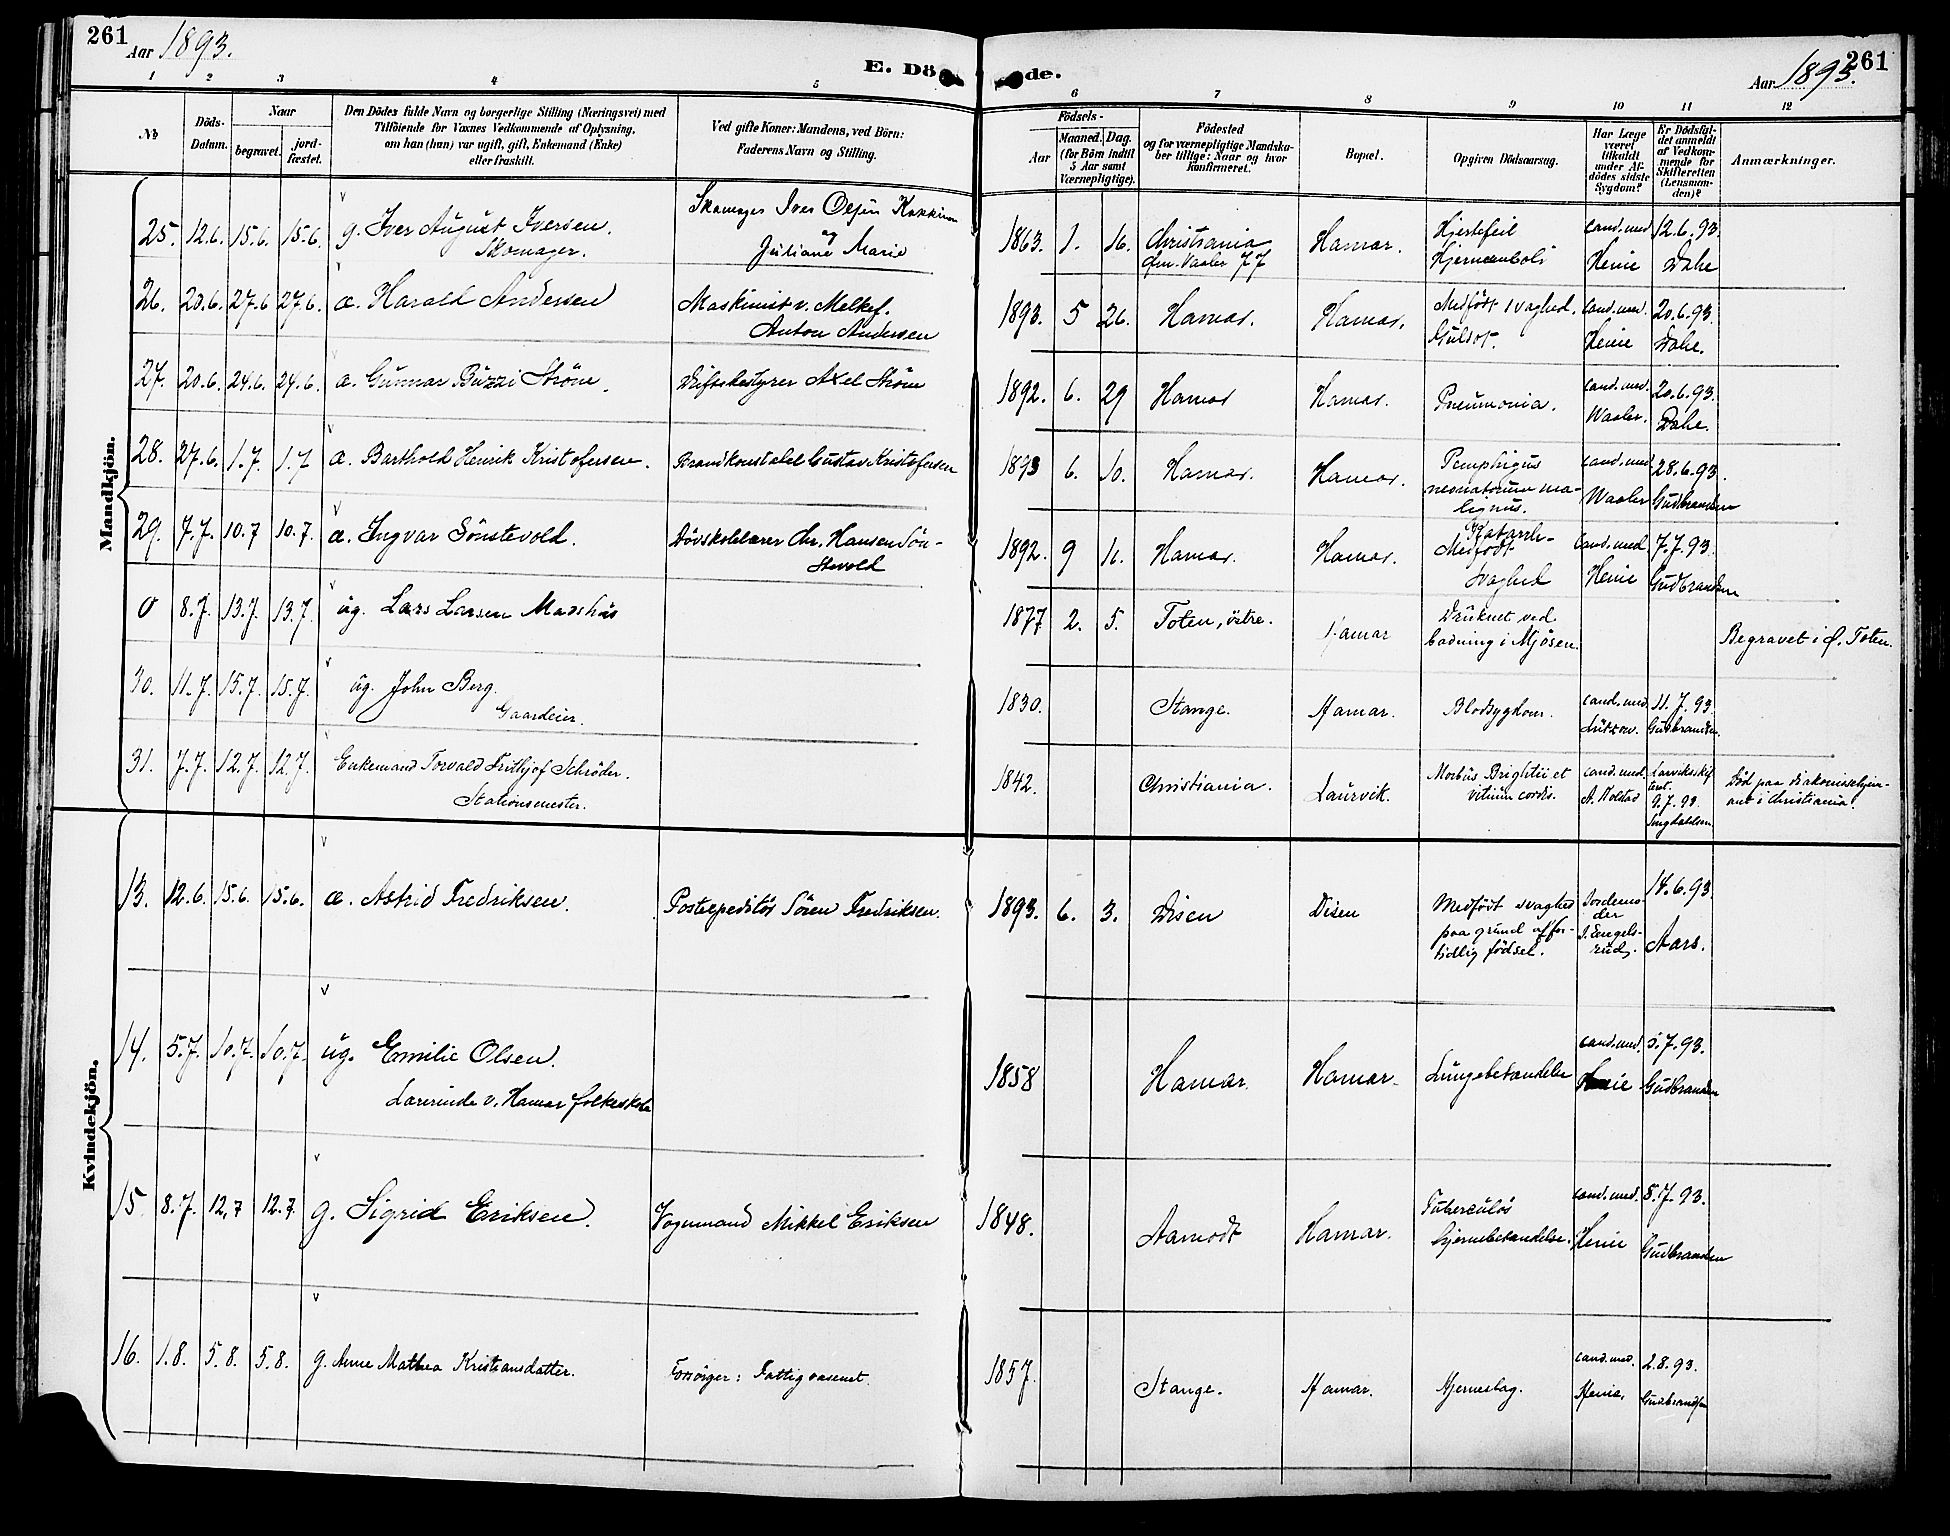 261
Aar 1893.
E. Dö
1 2 3 4 5
No
Döds-
Datum.
Naar
begravet.
jord-
fæstet.
Den Dödes fulde Navn og borgerlige Stilling (Næringsvei) med
Tilföiende for Voxnes Vedkommende af Oplysning,
om han (hun) var ugift, gift, Enkemand (Enke)
eller fraskilt.
Ved gifte Koner: Mandens, ved Börn:
Faderens Navn og Stilling.
Mandkjön.
25. 12.6. 15.6. 15.6. g. Iver August Iversen.
Skomager.
Skomager Iver Olsen
og
Juliane Marie
26. 20.6. 27.6 27.6. a. Harald Andersen
Maskinist v. Melkef.
Anton Andersen
27. 20.6. 24.6. 24.6. a. Gunnar Buzzi Strøm.
Driftsbestyrer Axel Strøm
28. 27.6. 1.7. 1.7 a. Barthold Henrik Kristofersen.
Brandkonstabel Gustav Kristofersen
29. 7.7. 10.7 10.7. a. Ingvar Sönstevold.
Dövskolelærer Chr. Hansen Sön-
stevold
0 8.7. 13.7. 13.7. ug. Lars Larsen Marshus
30. 11.7. 15.7. 15.7. ug. John Berg.
Gaardeier.
31. 7.7. 12.7. 12.7. Enkemand Torvald Frithjof Schrøder.
Stationsmester.
Kvindekjön.
13. 12.6. 15.6. 15.6. a. Astrid Fredriksen.
Postexpeditör Sören Fredriksen.
14. 5.7. 10.7. 10.7. ug. Emilie Olsen.
Lærerinde v. Hamar folkeskole
15 8.7. 12.7 12.7 g. Sigrid Eriksen.
Vognmand Mikkel Eriksen
16. 1.8. 5.8. 5.8. g. Anne Mathea Kristiansdatter.
Forsörger: Fattigvæsenet.
261
Aar 1893.
de.
6 7 8 9 10 11 12
Födsels-
Aar
Maaned.
Dag.
(for Börn indtil
5 Aar samt
Værnepligtige).
Födested
og for værnepligtige Mandska-
ber tillige: Naar og hvor
Konfirmeret.
Bopæl.
Opgiven Dödsaarsag.
Har Læge
været
tilkaldt
under Af-
dödes sidste
Sygdom?
Er Dödsfal-
det anmeldt
af Vedkom-
mende for
Skifteretten
(Lensman-
den)?
Anmærkninger.
1863. 1. 16. Christiania
Vaaler 77
Hamar.
Hjertefeil
Hjerneemboli
cand.med
Heie
12.6.93.
Dahe
1893. 5 26. Hamar. Hamar.
Medfödt svaghed.
Gulsot.
cand.med.
Heie
20.6.93.
Dahe.
1892. 6. 29 Hamar Hamar.
Pneumonia.
cand.med.
Waaler.
20.6.93.
Dahe.
1893 6. 10. Hamar. Hamar.
Pemphigus
neonatorum ma-
lignus.
cand.med
Waaler
28.6.93.
Gudbrandsen
1892. 9 11. Hamar. Hamar.
Katarrh-
Medfödt
svaghed
cand.med
Heie
7.7.93.
Gudbrandsen
1877 2. 5. Toten, östre. Hamar
Druknet ved
badning i Mjösen.
Begravet i Ø. Toten.
1830. Stange. Hamar. Blodsygdom.
cand.med.
Lützow.
11.7.93.
Gudbrandsen.
1842. Christiania. Laurvik.
Morbus Brightii et
vitium cordis.
cand.med.
A. Holstad
Larviks skif
teret.
9.7.93.
Död paa diakonissehjem-
met i Christiania.
1893. 6. 3. Disen Disen
Medfödt svaghed
paa grund af for-
tidlig födsel.
Jordemo-
der
J. Engels-
rud.
14.6.93.
Aars.
1858 Hamar. Hamar. Lungebetændelse
cand.med.
Heie
5.7.93.
Gudbrandsen
1848. Aamodt Hamar.
Tuberculös
hjernebetændelse.
cand.med.
Heie
8.7.93.
Gudbrandsen
1857. Stange. Hamar. Hjerneslag.
cand.med.
Heie.
2.8.93.
Gudbrandsen